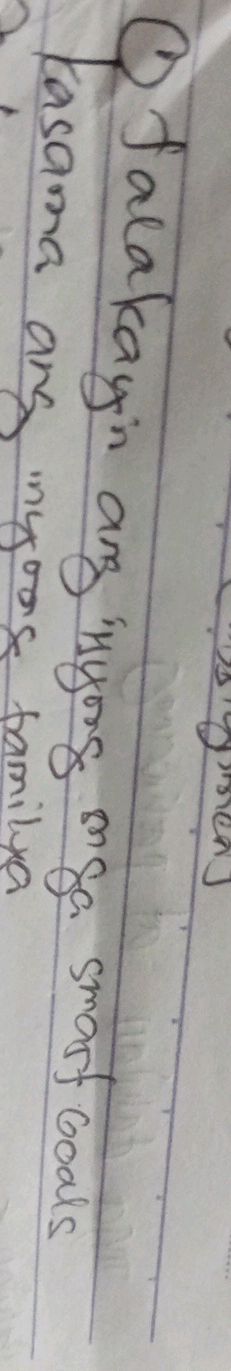 ① Talakayin ang inyong mga smart Goals
kasama ang inyong pamilya